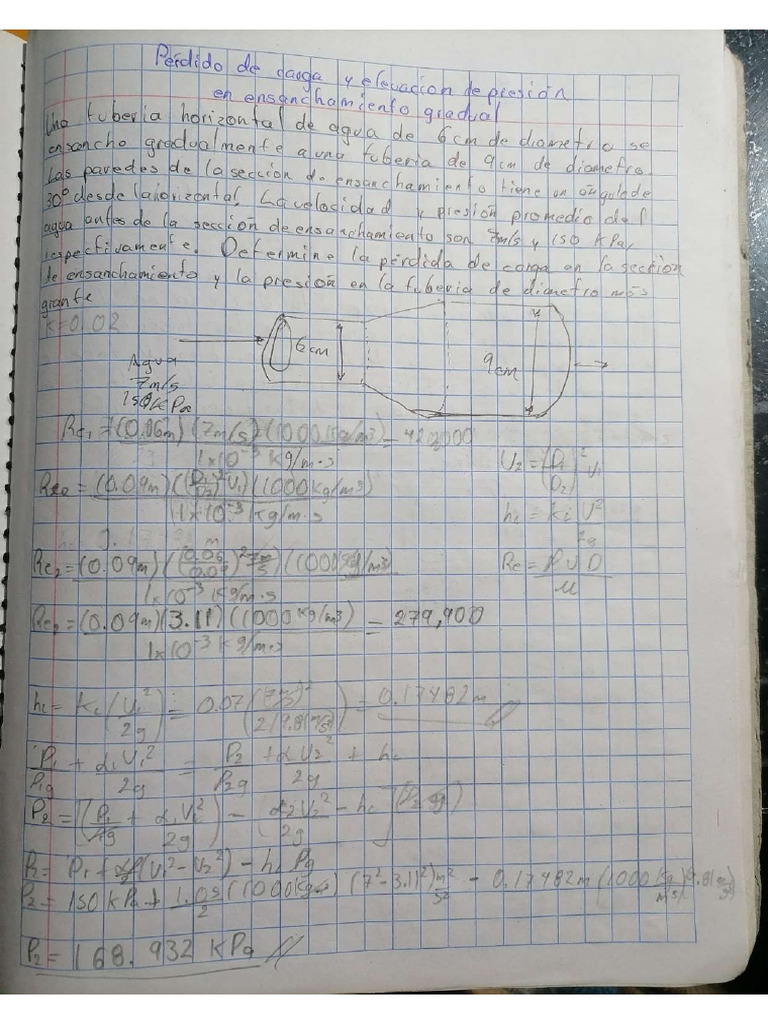 Pérdido de carga y elevacion de presión
en ensanchamiento gradual
Una tuberia horizontal de agua de 6 cm de diametro se
ensancho gradualmente a una tuberia de 9cm de diametro.
Las paredes de la sección de ensanchamiento tiene un angulo de
30° desde la orizontal. La velocidad y presión promedio del
agua antes de la sección de ensanchamiento son 7m/s y 150 KPa,
respectivamente. Determine la pérdida de carga en la sección
de ensanchamiento y la presión en la tuberia de diametro mas
grante
K=0.02
6cm
9cm
Agua
7m/s
150KPa
Re₁ = (0.06m)(7m/s)(1000kg/m³) = 420,000
1x10⁻³ kg/m·s
U₂ = (D₁/D₂)² V₁
Re₂ = (0.09m)((D₁/D₂)² V₁)(1000kg/m³)
1x10⁻³ kg/m·s
hL = kL V²/2g
Re₂ = (0.09m)((0.06/0.09)² 7m/s)(1000kg/m³)
1x10⁻³ kg/m·s
Re = ρ v D/μ
Re₂ = (0.09m)(3.11)(1000 kg/m³) = 279,900
1x10⁻³ kg/m·s
hL = KL (V₁²/2g) = 0.07 ((7m/s)²/2(9.81m/s²)) = 0.17482m
P₁/P₁g + α₁V₁²/2g = P₂/P₂g + α₂V₂²/2g + hL
P₂ = [(P₁/P₁g + α₁V₁²/2g) - α₂V₂²/2g - hL](P₂g)
P₂ = P₁ + αρ/2 (V₁² - V₂²) - hL Pg
P₂ = 150 kPa + 1.05/2 (1000kg) (7² - 3.11²) m²/s² - 0.17482m (1000 kg/m³) 9.81
P₂ = 168.932 KPa //